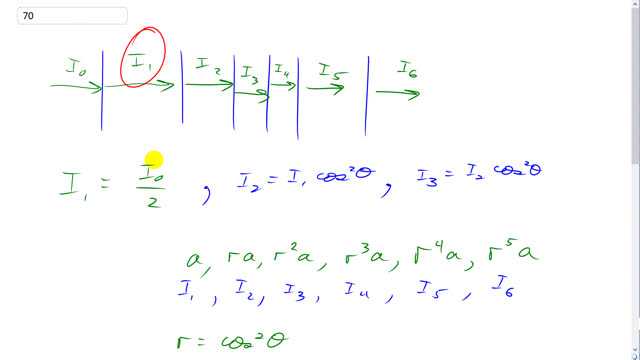 70
I₀ I₁ I₂ I₃ I₄ I₅ I₆
I₁ = I₀/2 , I₂ = I₁ cos²θ , I₃ = I₂ cos²θ
a, ra, r²a, r³a, r⁴a, r⁵a
I₁, I₂, I₃, I₄, I₅, I₆
r = cos²θ